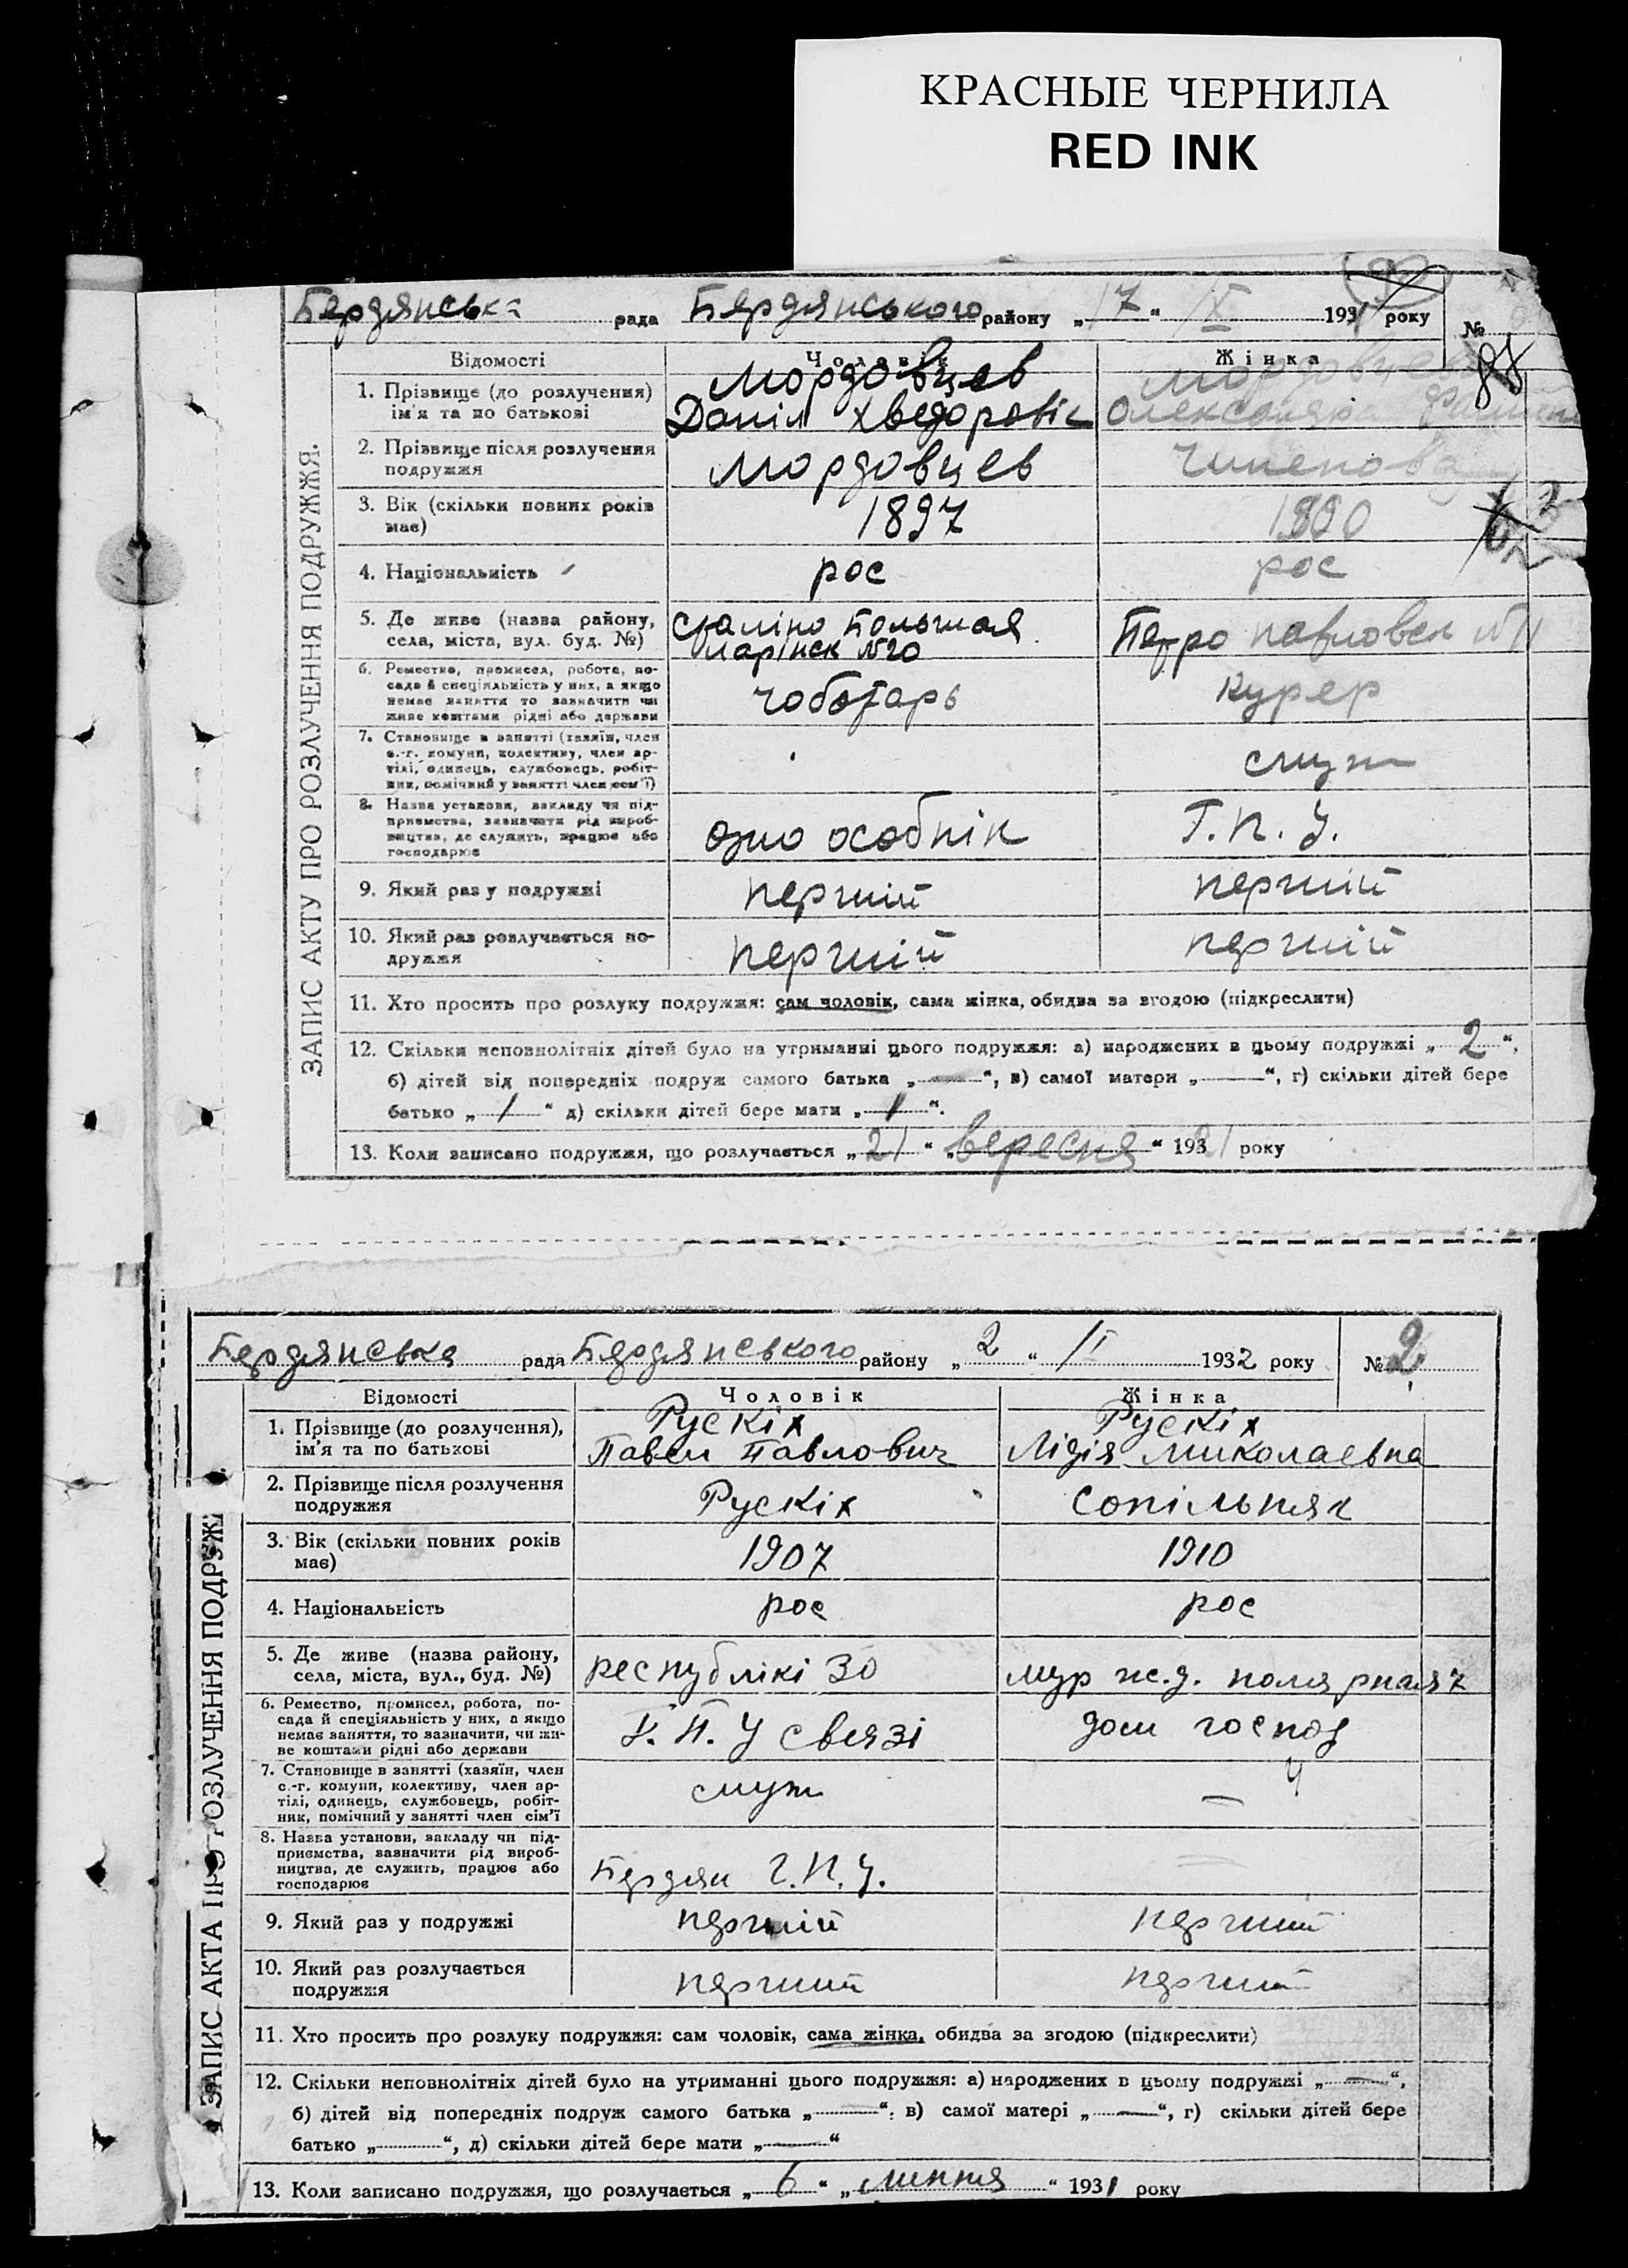 КРАСНЫЕ ЧЕРНИЛА
RED INK
ЗАПИС АКТУ ПРО РОЗЛУЧЕННЯ ПОДРУЖЖЯ.
Бердянська рада Бердянського району „17“ IX 1931 року №
88
Відомості Чоловік Жінка
1. Прізвище (до розлучення) ім'я та по батькові
Мордовцев
Даніл Хведоровіч
Мордовцева
Олександра
2. Прізвище після розлучення подружжя
Мордовцев
3. Вік (скільки повних років має)
1897
1900
4. Національність
рос
рос
5. Де живе (назва району, села, міста, вул. буд. №)
Сталіно Большая
Марінск №20
Петро павловск №11
6. Ремество, промисел, робота, посада й спеціяльність у них, а якщо немає заняття то зазначити чи живе коштами рідні або держави
чоботарь
Курер
7. Становище в занятті (хазяїн, член с.-г. комуни, колективу, член артілі, одинець, службовець, робітник, помічний у занятті член сем'ї)
служ
8. Назва установи, закладу чи підприємства, зазначити рід виробництва, де служить, працює або господарює
одно особнік
Г.П.У.
9. Який раз у подружжі
першій
першій
10. Який раз розлучається подружжя
першій
першій
11. Хто просить про розлуку подружжя: сам чоловік, сама жінка, обидва за згодою (підкреслити)
12. Скільки неповнолітніх дітей було на утриманні цього подружжя: а) народжених в цьому подружжі „2“,
б) дітей від попередніх подруж самого батька „—“, в) самої матери „—“, г) скільки дітей бере
батько „1“ д) скільки дітей бере мати „1“.
13. Коли записано подружжя, що розлучається „21“ „вересня“ 1921 року
ЗАПИС АКТА ПРО РОЗЛУЧЕННЯ ПОДРУЖ
Бердянська рада Бердянського району „2“ I 1932 року № 2
Відомості Чоловік Жінка
1. Прізвище (до розлучення), ім'я та по батькові
Рускіх
Павел Павлович
Рускіх
Лідія Миколаевна
2. Прізвище після розлучення подружжя
Рускіх
Сопільняк
3. Вік (скільки повних років має)
1907
1910
4. Національність
рос
рос
5. Де живе (назва району, села, міста, вул., буд. №)
республікі 30
мур ж.д. полярная 7
6. Ремество, промисел, робота, посада й спеціяльність у них, а якщо немає заняття, то зазначити, чи живе коштами рідні або держави
Г.П.У связі
дом господ
7. Становище в занятті (хазяїн, член с.-г. комуни, колективу, член артілі, одинець, службовець, робітник, помічний у занятті член сім'ї
служ
—
8. Назва установи, закладу чи підприємства, зазначити рід виробництва, де служить, працює або господарює
Бердян Г.П.У.
9. Який раз у подружжі
першій
перший
10. Який раз розлучається подружжя
перший
перший
11. Хто просить про розлуку подружжя: сам чоловік, сама жінка, обидва за згодою (підкреслити)
12. Скільки неповнолітніх дітей було на утриманні цього подружжя: а) народжених в цьому подружжі „—“,
б) дітей від попередніх подруж самого батька „—“, в) самої матері „—“, г) скільки дітей бере
батько „—“, д) скільки дітей бере мати „—“
13. Коли записано подружжя, що розлучається „6“ „липня“ 1931 року